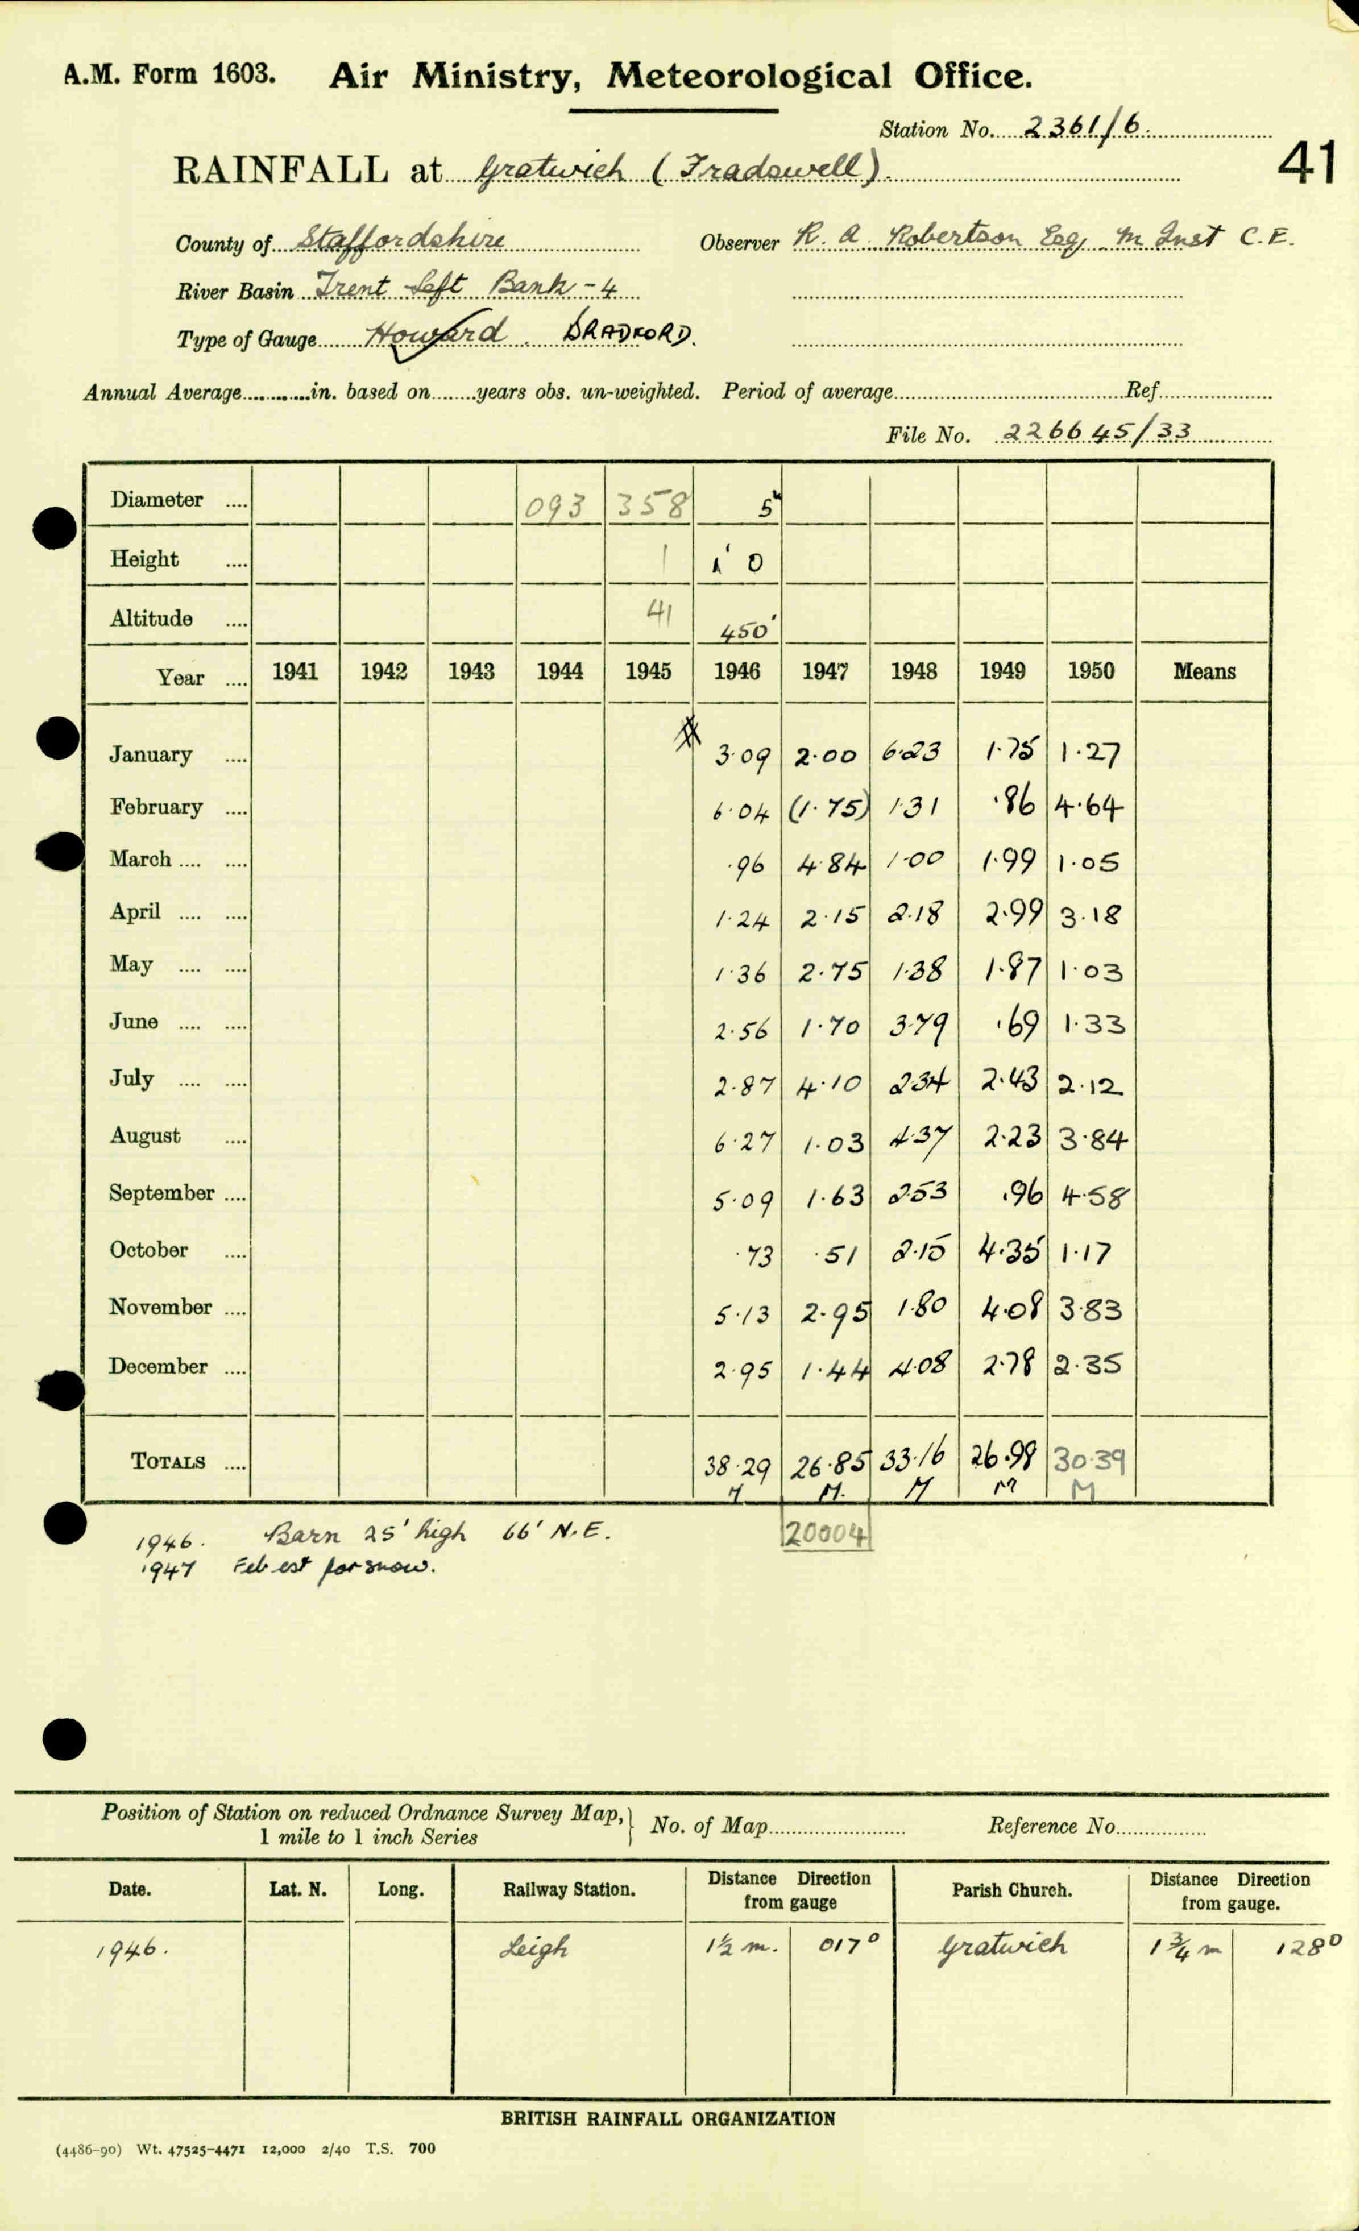 A.M. Form 1603. Air Ministry, Meteorological Office.
Station No. 2361/6.
41
RAINFALL at Gratwich (Fradswell).
County of Staffordshire Observer R. A. Robertson Esq. M Inst C.E.
River Basin Trent Left Bank - 4
Type of Gauge Howard. BRADFORD.
Annual Average............in. based on........years obs. un-weighted. Period of average........ Ref........
File No. 226645/33
Diameter .... 093 358 5"
Height .... 1 1' 0
Altitude .... 41 450'
Year .... 1941 1942 1943 1944 1945 1946 1947 1948 1949 1950 Means
January .... # 3.09 2.00 6.23 1.75 1.27
February .... 6.04 (1.75) 1.31 .86 4.64
March .... .... .96 4.84 1.00 1.99 1.05
April .... .... 1.24 2.15 2.18 2.99 3.18
May .... .... 1.36 2.75 1.38 1.87 1.03
June .... .... 2.56 1.70 3.79 .69 1.33
July .... .... 2.87 4.10 2.34 2.43 2.12
August .... 6.27 1.03 4.37 2.23 3.84
September .... 5.09 1.63 2.53 .96 4.58
October .... .73 .51 2.15 4.35 1.17
November .... 5.13 2.95 1.80 4.08 3.83
December .... 2.95 1.44 4.08 2.78 2.35
TOTALS .... 38.29 26.85 33.16 26.98 30.39
M M. M M M
1946. Barn 25' high 66' N.E. 20004
1947 Feb est for snow.
Position of Station on reduced Ordnance Survey Map, 1 mile to 1 inch Series } No. of Map........ Reference No........
Date. Lat. N. Long. Railway Station. Distance Direction from gauge Parish Church. Distance Direction from gauge.
1946. Leigh 1½ m. 017° Gratwich 1¾ m 128°
BRITISH RAINFALL ORGANIZATION
(4486-90) Wt. 47525-4471 12,000 2/40 T.S. 700